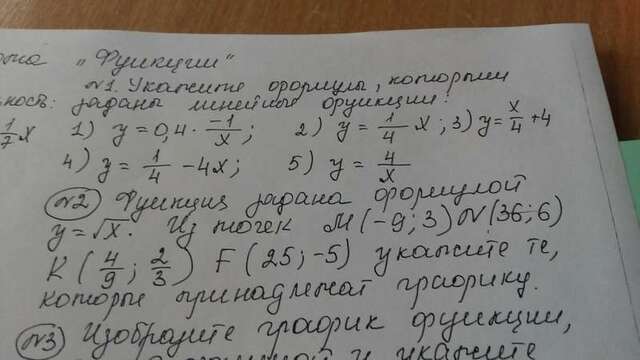 "Функции"
№1. Укажите формулы, которыми
заданы линейные функции:
1/7 x 1) y = 0,4 · -1/x; 2) y = 1/4 x; 3) y = x/4 + 4
4) y = 1/4 - 4x; 5) y = 4/x
№2 Функция задана формулой
y = √x. Из точек M(-9; 3) N(36; 6)
K(4/9; 2/3) F(25; -5) укажите те,
которые принадлежат графику.
№3 Изобразите график функции,
и укажите